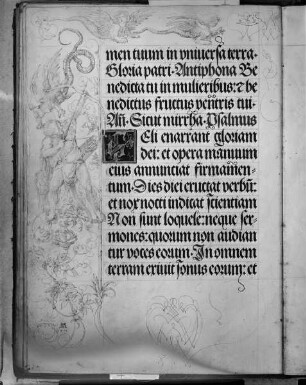 men tuum in vniuersa terra.
Gloria patri. Antiphona Be
nedicta tu in mulieribus: et be
nedictus fructus ventris tui.
Añ. Sicut mirrha. Psalmus
Celi enarrant gloriam
dei: et opera manuum
eius annunciat firmamen-
tum. Dies diei eructat verbū:
et nox nocti indicat scientiam
Non sunt loquele: neque ser-
mones: quorum non audian
tur voces eorum. In omnem
terram exiuit sonus eorum: et